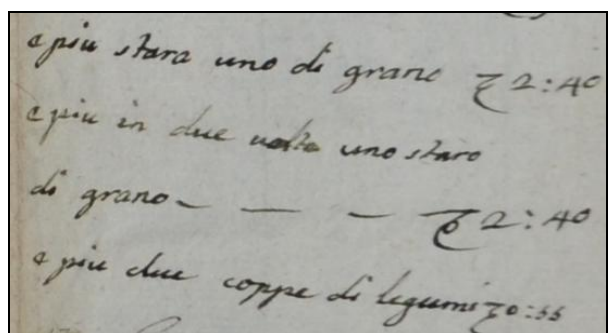 e piu stara uno di grano ʒ 2:40
e piu in due uolte uno staro
di grano — — — — ʒ 2:40
e piu due coppe di legumi ʒ 0:55